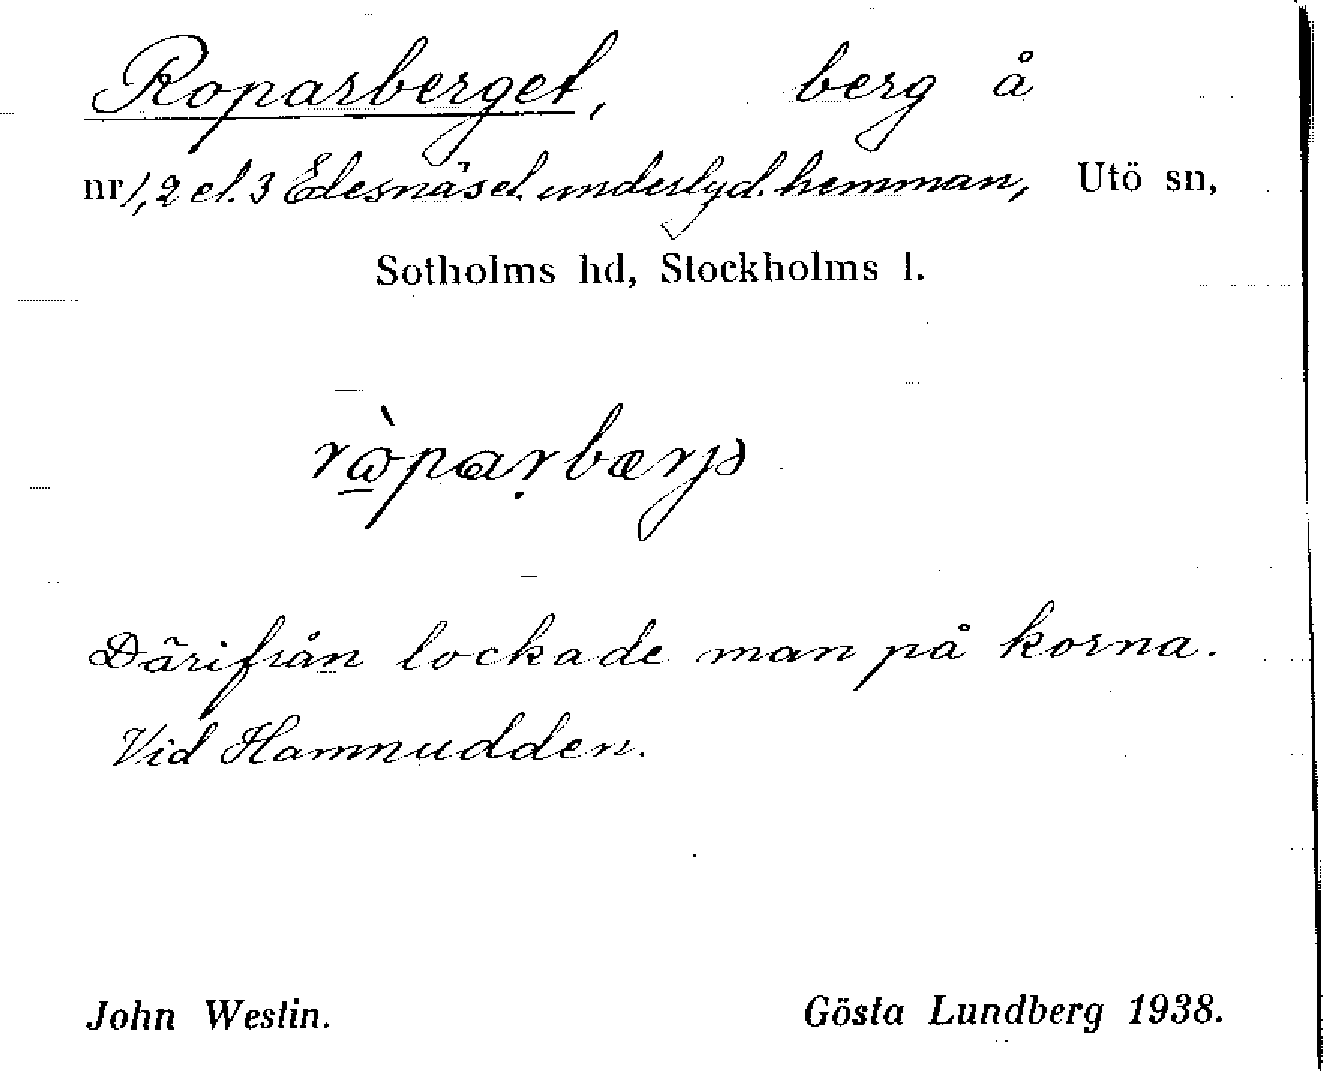 Roparberget, berg å
nr 1, 2 el. 3 Edesnäset underlyd. hemman, Utö sn,
Sotholms hd, Stockholms l.
Därifrån lockade man på korna.
Vid Hamnudden.
John Westin. Gösta Lundberg 1938.